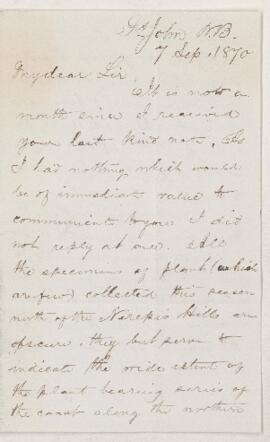 St. John N.B.
7 Sep. 1870
My dear Sir
It is now a
month since I received
your last kind note. As
I had nothing which would
be of immediate value to
communicate to you I did
not reply at once. All
the specimens of plants (which
are few) collected this season
north of the Nerepis Hills are
obscure, they but serve to
indicate the wide extent of
the plant bearing series of
the coast along the northern